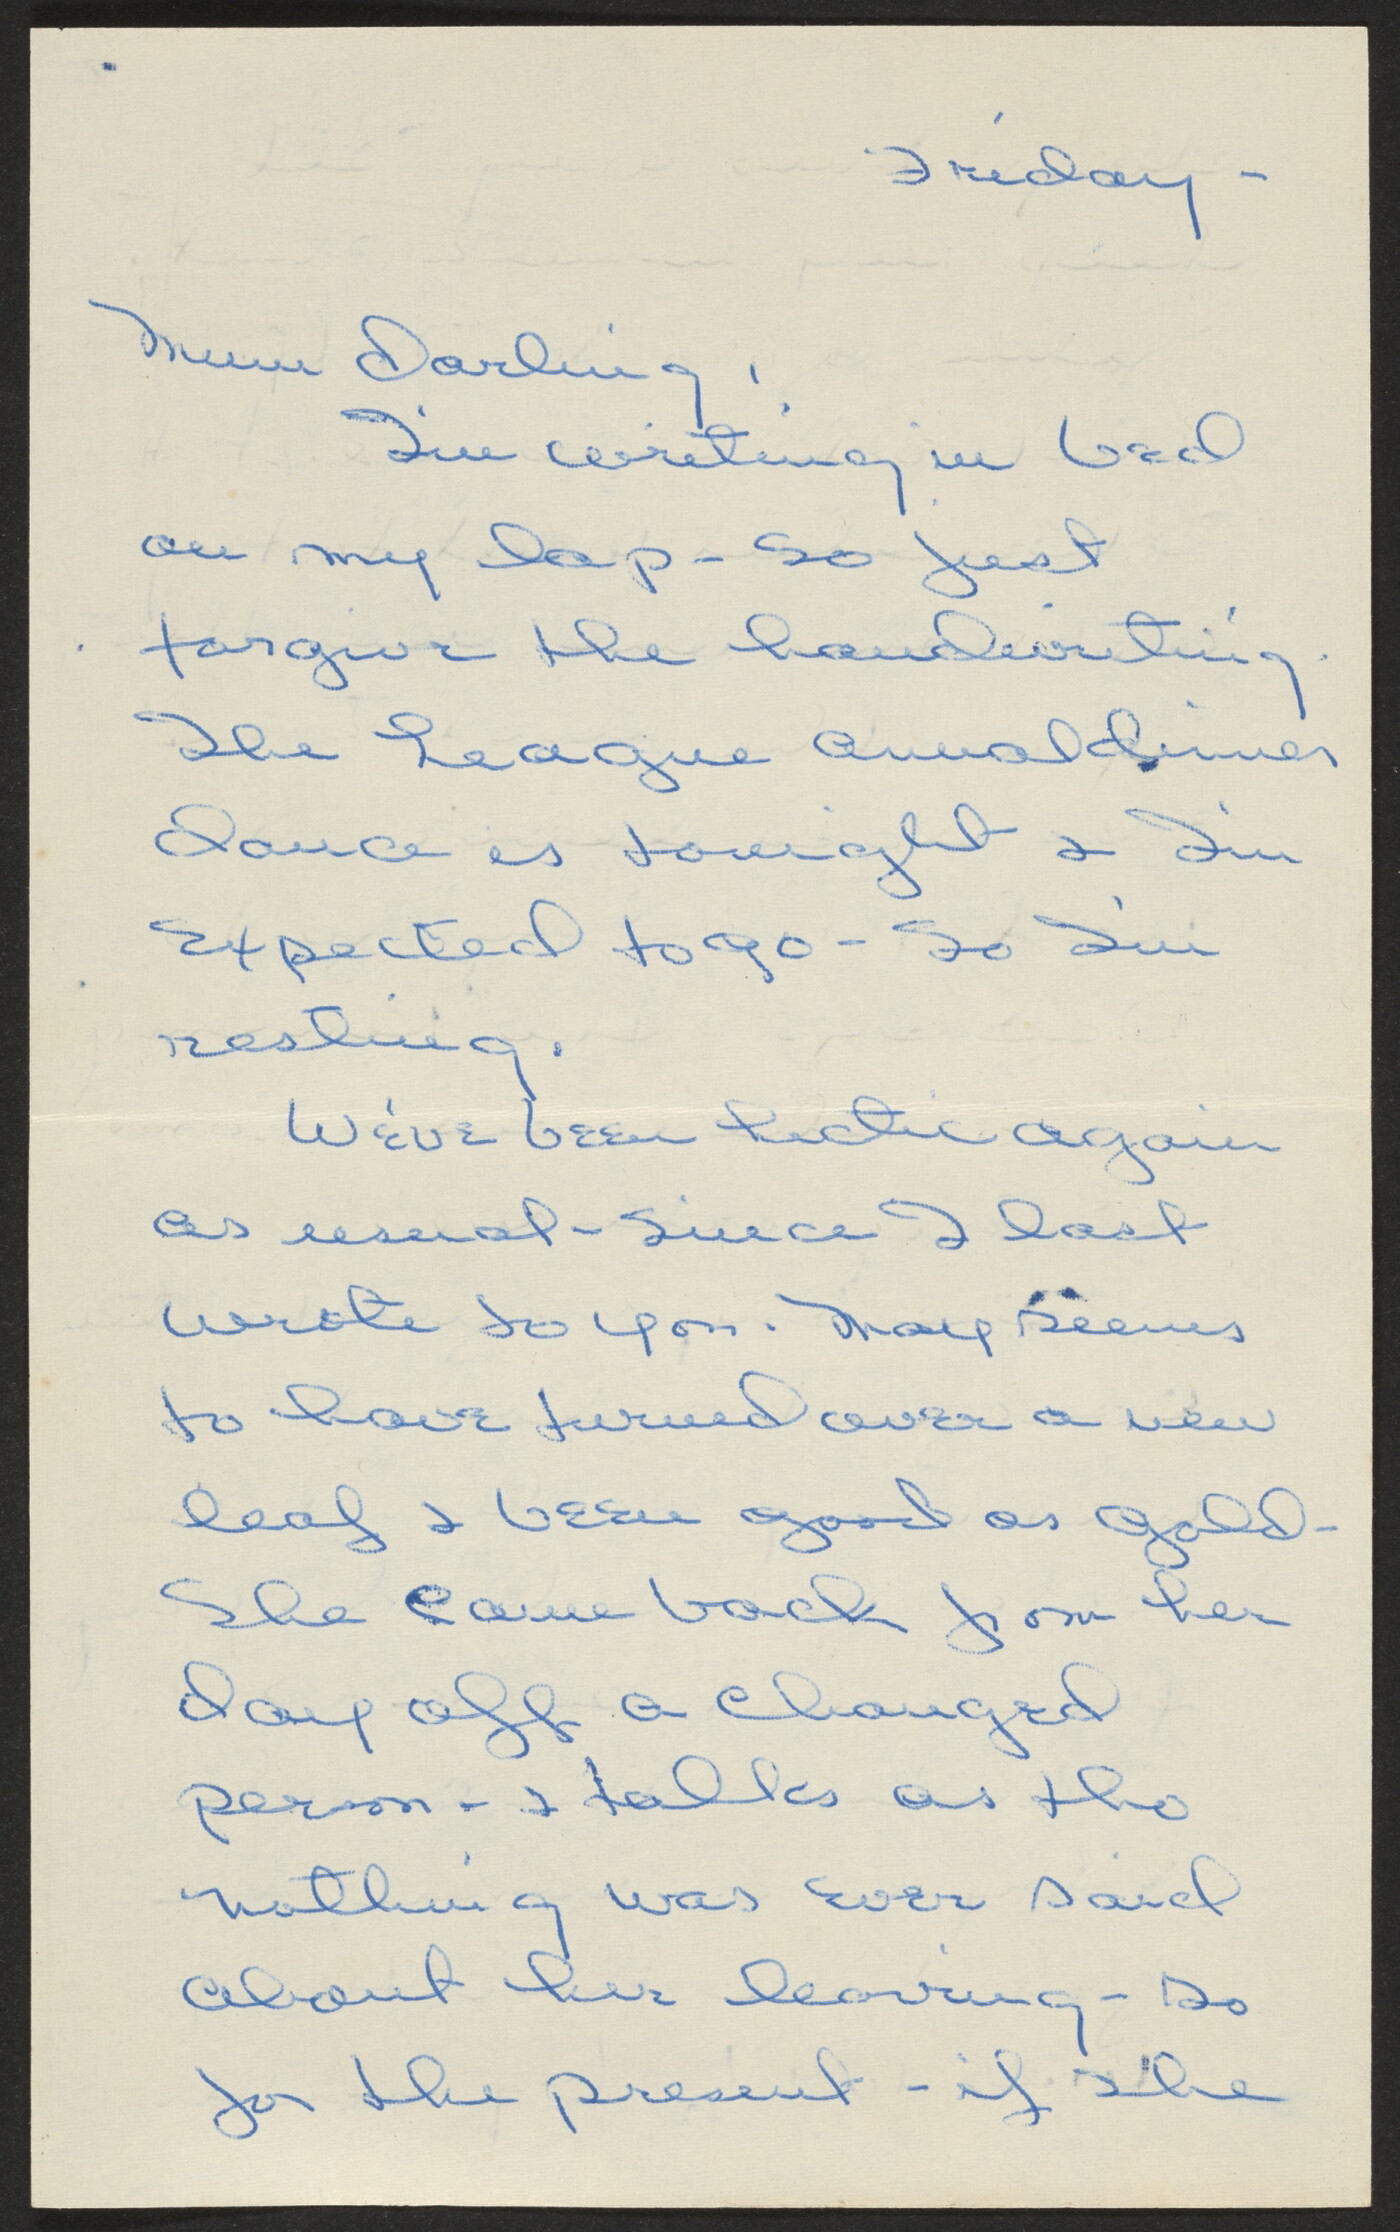 Friday -
Mum Darling,
I'm writing in bed
on my lap - so just
forgive the handwriting.
The League annual dinner
dance is tonight & I'm
expected to go - So I'm
resting.
We've been hectic again
as usual - since I last
wrote to you. May seems
to have turned over a new
leaf & been good as gold -
She came back from her
day off a changed
person - & talks as tho
nothing was ever said
about her leaving - so
for the present - if she